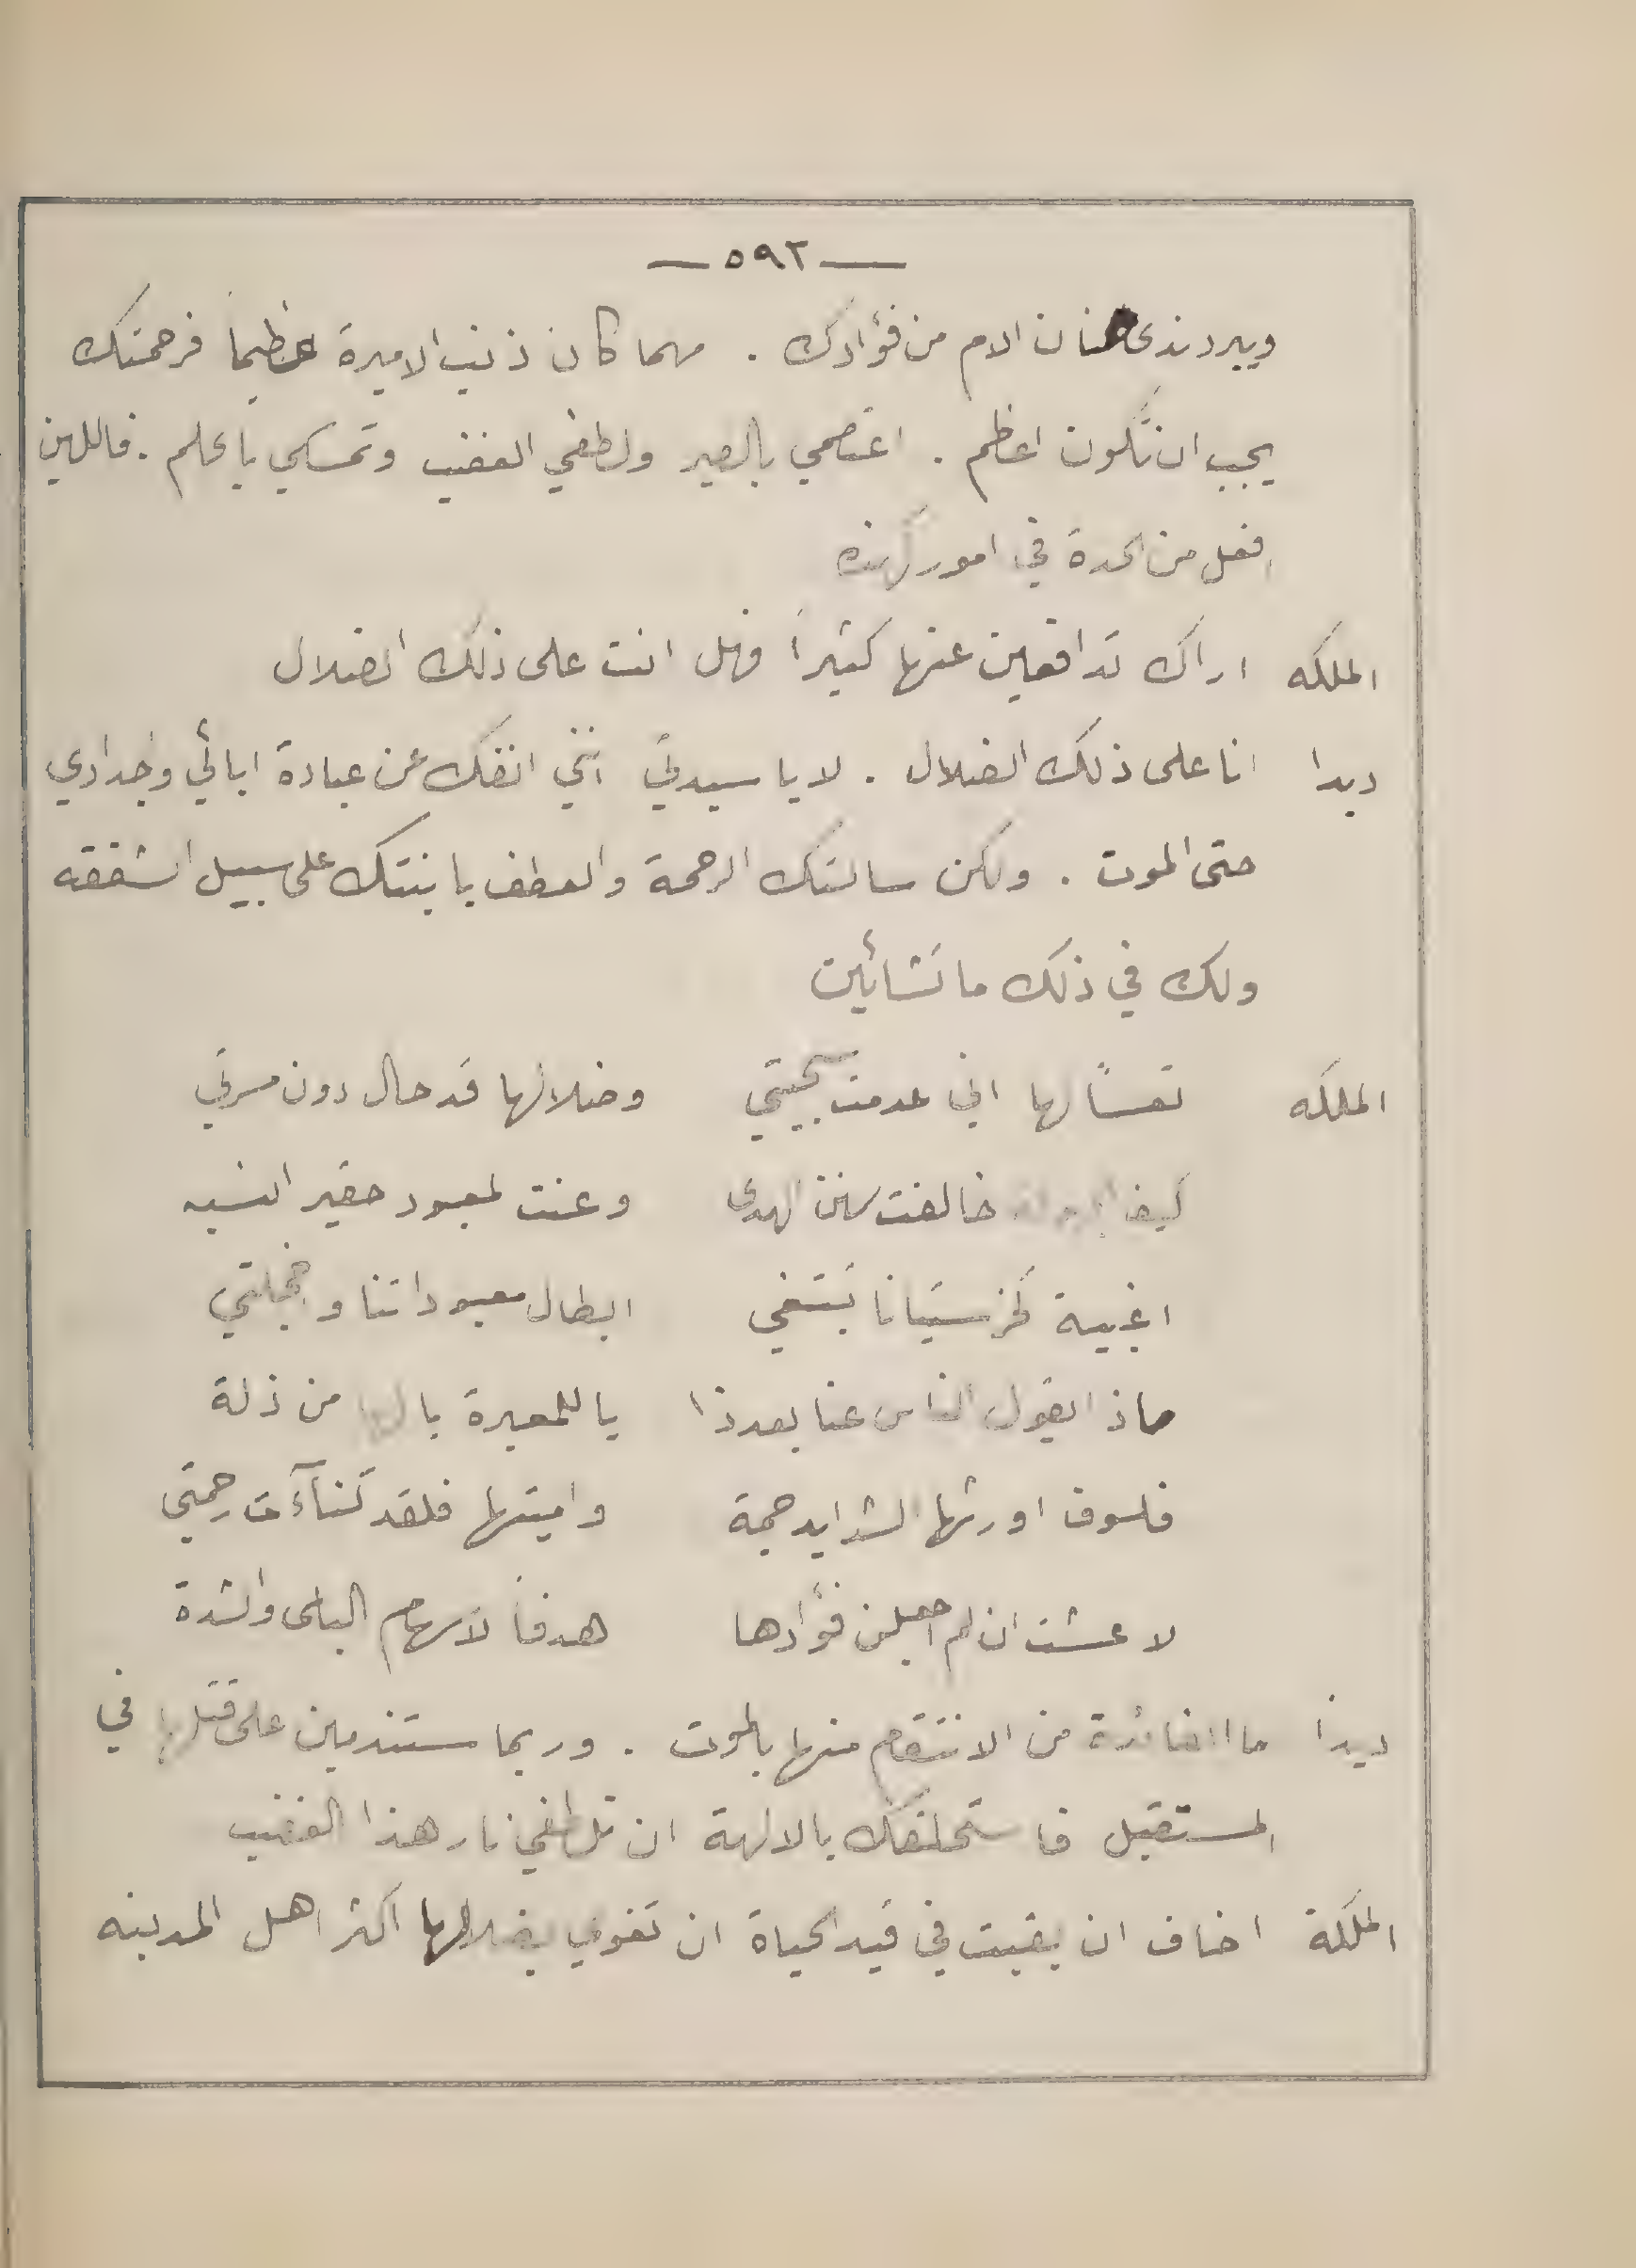 — ٥٩٢ —
ويبرد ندى حنان الام من فؤادك . مهما كان ذنب الاميرة عظيماً فرحمتك
يجب ان تكون اعظم . اعتصمي بالصبر ولطفي الغضب وتمسكي بالحلم . فاللين
افضل من الحدة في امور كهذه
الملكه اراك تدافعين عنها كثيراً فهل انت على ذلك الضلال
ديدا انا على ذلك الضلال . لا يا سيدتي انني انفك عن عبادة ابائي واجدادي
حتى الموت . ولكن سالتك الرحمة والعطف بابنتك على سبيل الشفقه
ولك في ذلك ما تشائين
الملكه تعساً لها اني عدمت محبتي وضلالها قد حال دون مسرتي
كيف خالفت سنن الهدى وعنت لمعبود حقير النسبه
اغبية كخرستيانا تبتغي ابطال معبوداتنا واخجلتي
ماذا يقول الناس عنا بعد ذا يا للمعيرة يا لها من ذلة
فلسوف اورثها الشدايد جمة واميتها فلقد تناءت رحمتي
لا عشت ان لم اجعلن فؤادها هدفاً لاسهام البلى والشدة
ديدا ما الفائدة من الانتقام منها بالموت . وربما ستندمين على قتلها في
المستقبل فاستحلفك بالالهة ان تلطفي نار هذا الغضب
الملكة اخاف ان بقيت في قيد الحياة ان تغوي بضلالها اكثر اهل المدينه